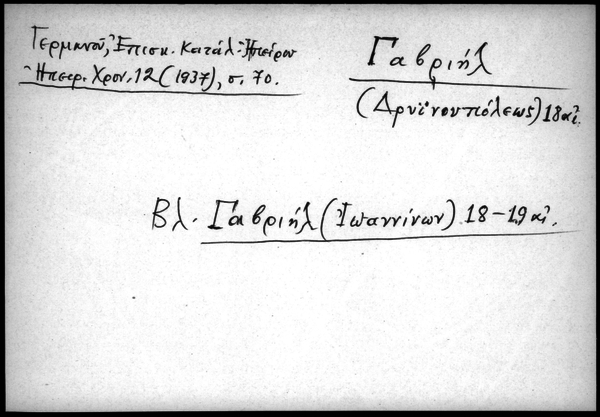 Γερμανοῦ, Ἐπισκ. Κατάλ. Ἠπείρου
Ἠπειρ. Χρον. 12 (1937), σ. 70.
Γαβριήλ
(Δρυϊνουπόλεως) 18 αἰ.
Βλ. Γαβριήλ (Ἰωαννίνων) 18-19 αἰ.